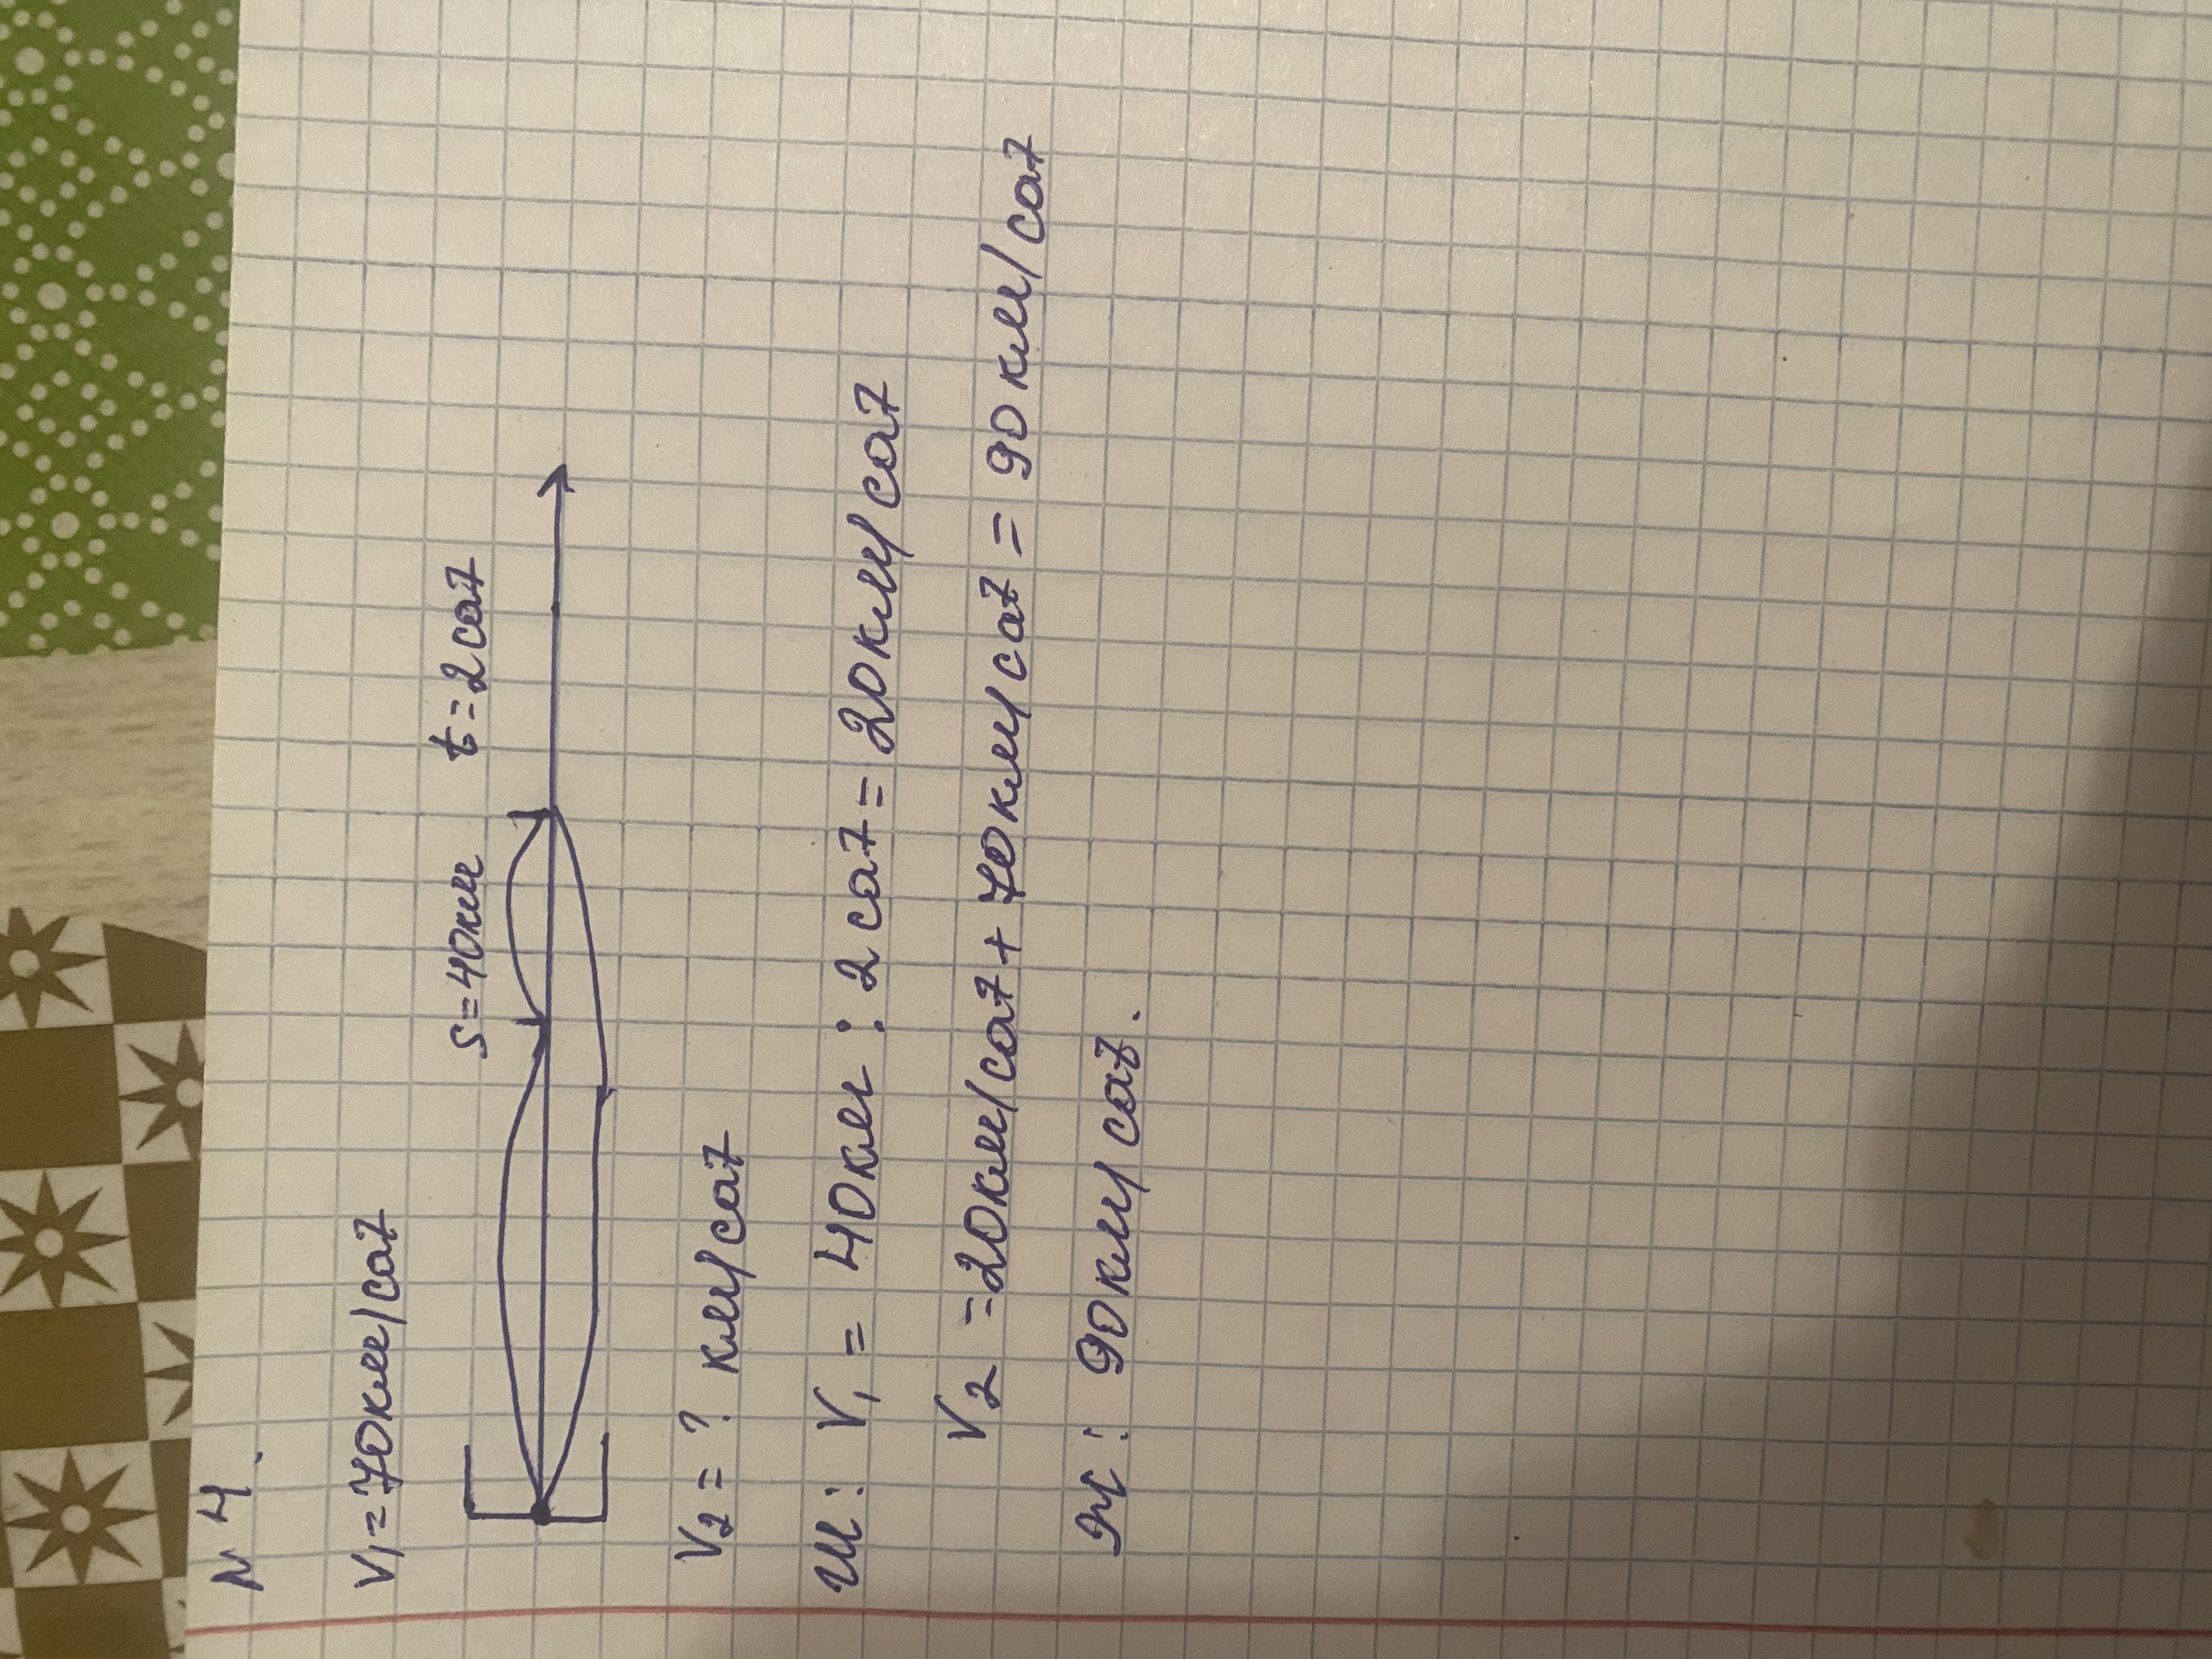 N 4.
V₁ = 70км/сағ
S = 40км t = 2 сағ
V₂ = ? км/сағ
Ш: V₁ = 40км : 2 сағ = 20км/сағ
V₂ = 20км/сағ + 70км/сағ = 90 км/сағ
Ж: 90км/сағ.